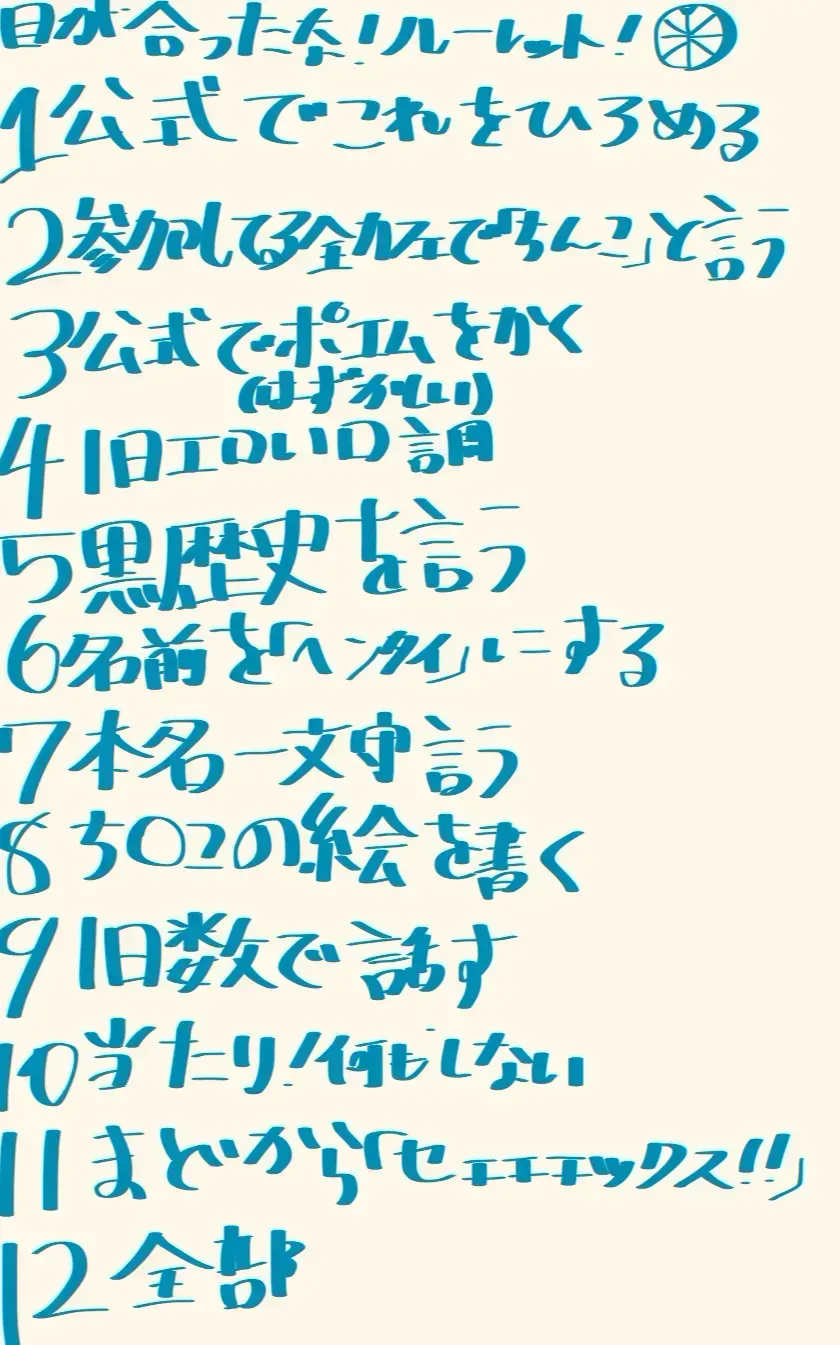 目が合ったな!ルーレット!
1公式でこれをひろめる
2参加してる全カフェで「ちんこ」と言う
3公式でポエムをかく
(はずかしい)
4 1日エロい口調
5黒歴史を言う
6名前を「ヘンタイ」にする
7本名一文字言う
8ち〇コの絵を書く
9 1日敬語で話す
10当たり!何もしない
11まどから「セエエエックス!!」
12全部